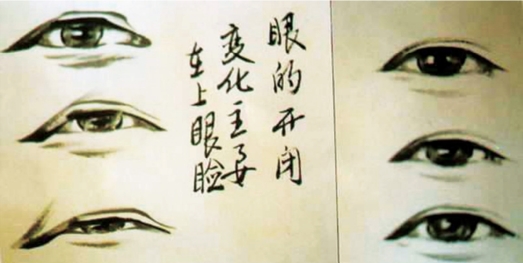 眼的开闭
变化主要
在上眼睑